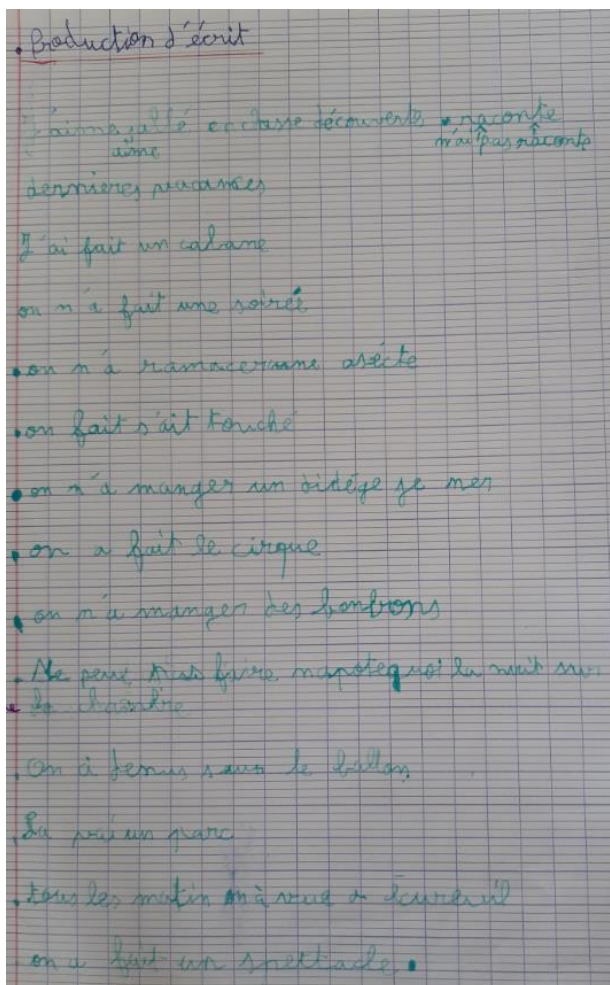 . Production d'écrit
J'aime allé en classe découverte • raconte
aime n'ai pas raconte
dernières vacances
J'ai fait un cabane
on n'a fait une soirée
• on n'a ramacer une asécte
• on fait s'ait touché
• on n'a manger un
• on a fait le cirque
• on n'a manger des bonbons
. Ne peux pas faire la nuit sur
la chambre
. On à le ballon
. La un parc
. tous les matin on à vue a écureuil
. on a fait un spectacle.